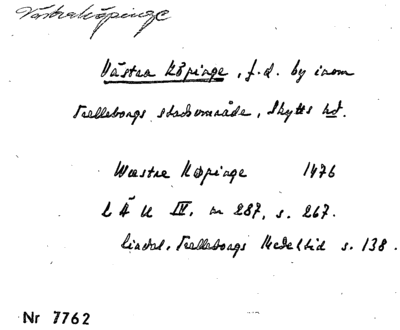 Västraköpinge
Västra Köpinge, f.d. by inom
Trelleborgs stadsområde, Skytts hd.
Wæstre Køpinge 1476
LÄU IV. nr 287, s. 267.
Lindal, Trelleborgs Medeltid s. 138.
Nr 7762